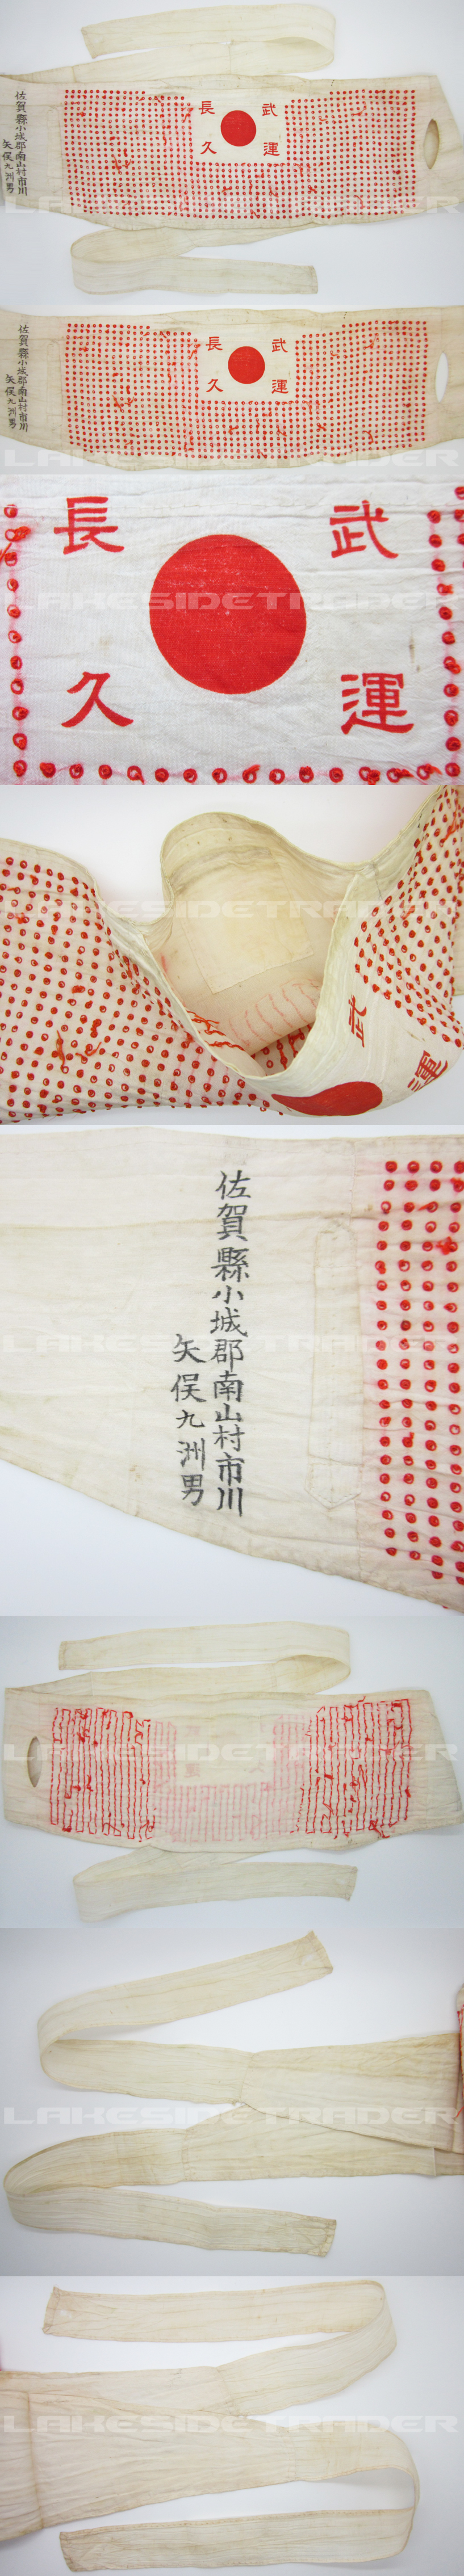 武運
長久
佐賀縣小城郡南山村市川
矢俣九洲男
LAKESIDETRADER
武運
長久
佐賀縣小城郡南山村市川
矢俣九洲男
LAKESIDETRADER
武運
長久
LAKESIDETRADER
LAKESIDETRADER
武運
佐賀縣小城郡南山村市川
矢俣九洲男
LAKESIDETRADER
LAKESIDETRADER
LAKESIDETRADER
LAKESIDETRADER